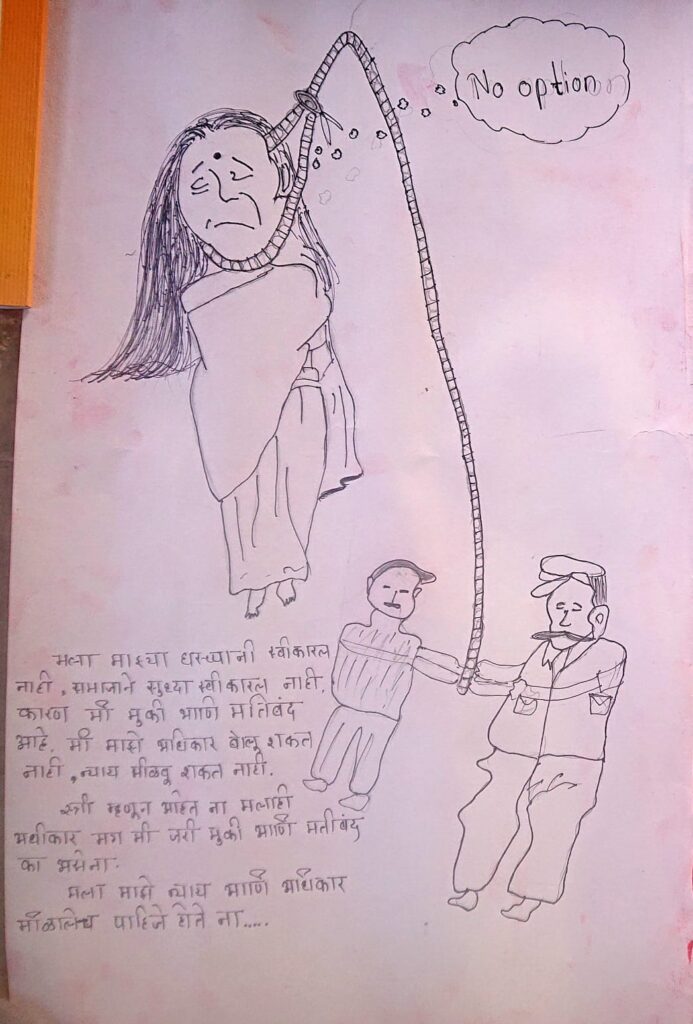 No option
मला माझ्या घरच्यानी स्वीकारल
नाही, समाजाने सुध्दा स्वीकारल नाही.
कारण मी मुकी आणि मतिबंद
आहे. मी माझे अधिकार बोलू शकत
नाही, न्याय मीळवू शकत नाही.
स्त्री म्हणून आहेत ना मलाही
अधीकार मग मी जरी मुकी आणि मतीबंद
का असेना.
मला माझे न्याय आणि अधिकार
मीळालेच पाहिजे होते ना.....